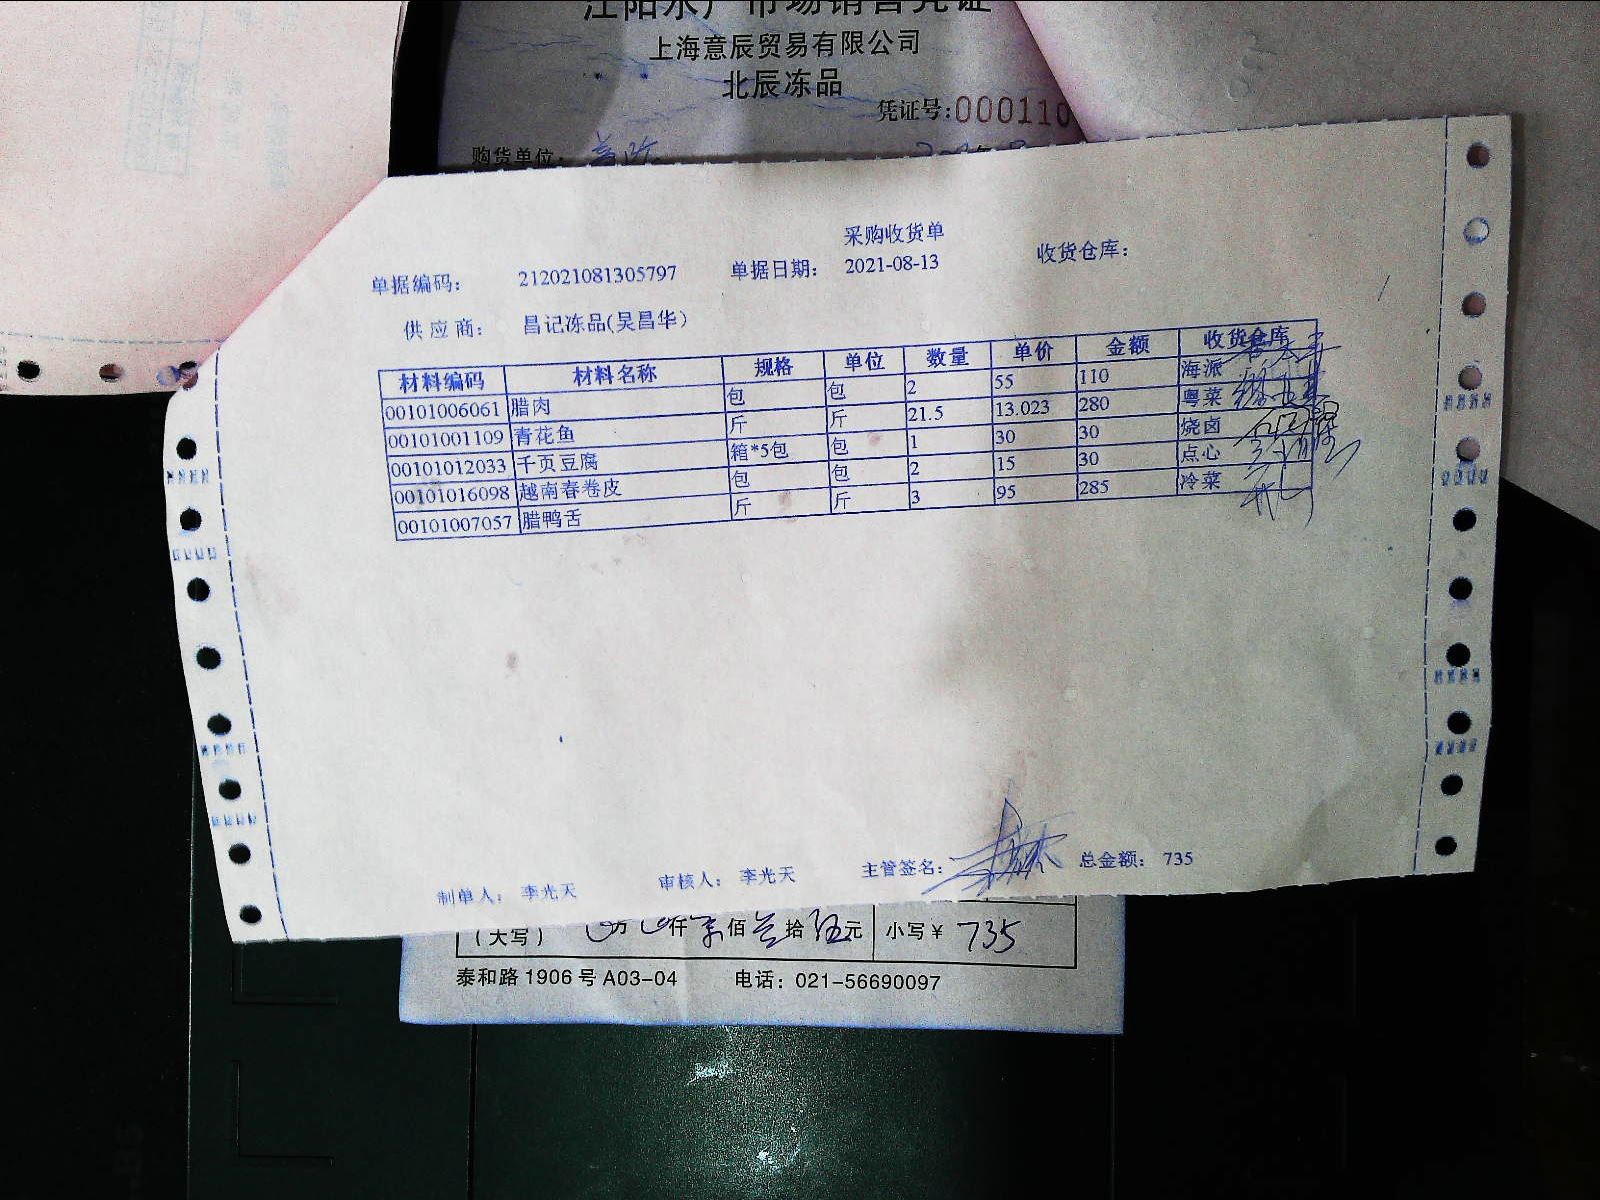 上海意辰贸易有限公司
北辰冻品
凭证号:000110
购货单位:
采购收货单
单据编码: 212021081305797 单据日期: 2021-08-13 收货仓库:
供应商: 昌记冻品(吴昌华)
材料编码 材料名称 规格 单位 数量 单价 金额 收货仓库
00101006061 腊肉 包 包 2 55 110 海派
00101001109 青花鱼 斤 斤 21.5 13.023 280 粤菜
00101012033 千页豆腐 箱*5包 包 1 30 30 烧卤
00101016098 越南春卷皮 包 包 2 15 30 点心
00101007057 腊鸭舌 斤 斤 3 95 285 冷菜
制单人: 李光天 审核人: 李光天 主管签名: 总金额: 735
(大写) 万 仟 佰 拾 伍元 小写¥ 735
泰和路1906号A03-04 电话: 021-56690097